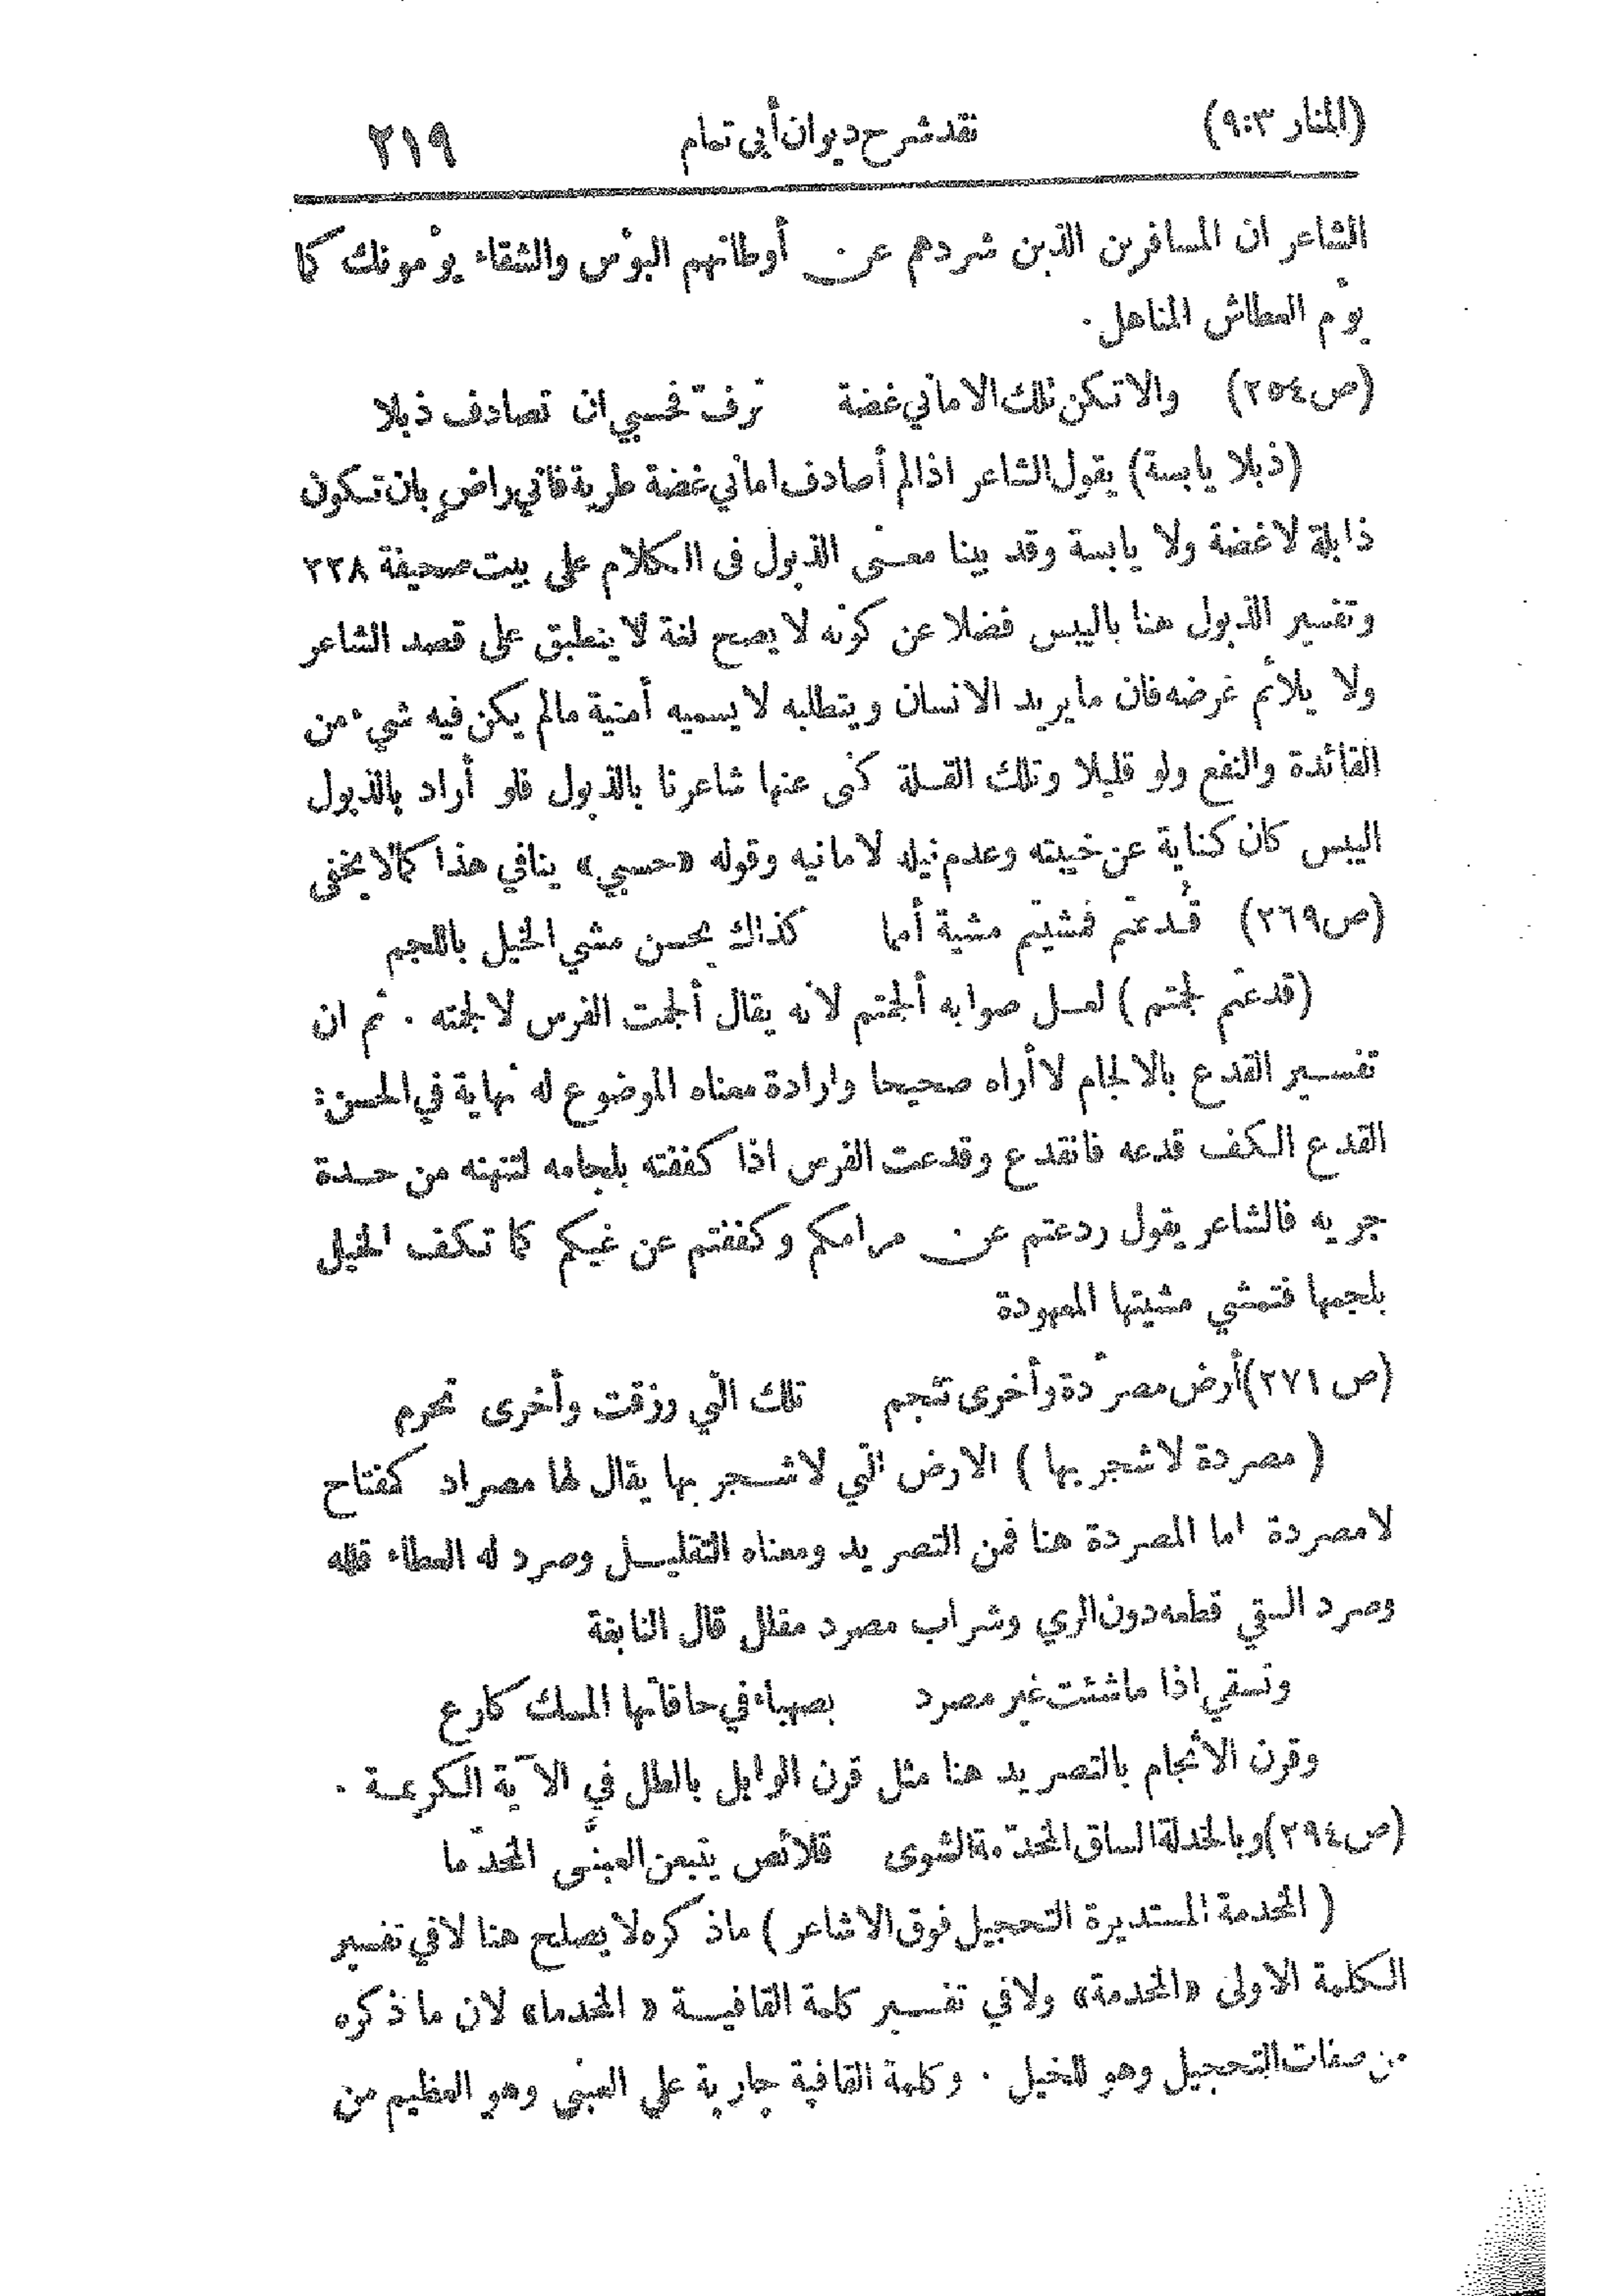 (المنار ٩:٣) نقد شرح ديوان أبي تمام ٢١٩
الشاعر ان المسافرين الذين شردهم عن أوطانهم البؤس والشقاء يؤمونك كما
يؤم العطاش المناهل.
(ص٢٥٤) والا تكن تلك الاماني غضة ترف فحسبي ان تصادف ذبلا
(ذبلا يابسة) يقول الشاعر اذا لم أصادف اماني غضة طرية فاني راضٍ بان تكون
ذابلة لا غضة ولا يابسة وقد بينا معنى الذبول فى الكلام على بيت صحيفة ٢٢٨
وتفسير الذبول هنا باليبس فضلا عن كونه لا يصح لغة لا ينطبق على قصد الشاعر
ولا يلائم غرضه فان ما يريد الانسان ويتطلبه لا يسميه أمنية مالم يكن فيه شيء من
الفائدة والنفع ولو قليلا وتلك القلة كنى عنها شاعرنا بالذبول فلو أراد بالذبول
اليبس كان كناية عن خيبته وعدم نيله لامانيه وقوله «حسبي» ينافي هذا كمالا يخفى
(ص٢٦٩) قُدعتم فمشيتم مشية أمما كذاك يحسن مشي الخيل باللجم
(قدعتم لجمتم) لعل صوابه ألجمتم لانه يقال ألجمت الفرس لا لجمته. ثم ان
تفسير القدع بالالجام لا أراه صحيحا وارادة معناه الموضوع له نهاية في الحسن:
القدع الكف قدعه فانقدع وقدعت الفرس اذا كففته بلجامه لتنهنه من حدة
جريه فالشاعر يقول ردعتم عن مرامكم وكففتم عن غيكم كما تكف الخيل
بلجمها فتمشي مشيتها المعهودة
(ص ٢٧١) أرض مصرّدة وأخرى تثجم تلك التي رزقت وأخرى تحرم
(مصردة لا شجر بها) الارض التي لا شجر بها يقال لها مصراد كمفتاح
لا مصردة اما المصردة هنا فمن التصريد ومعناه التقليل وصرد له العطاء قلله
وصرد السقي قطعه دون الري وشراب مصرد مقلل قال النابغة
وتسقي اذا ما شئت غير مصرد بصهباء في حافاتها المسك كارع
وقرن الاثجام بالتصريد هنا مثل قرن الوابل بالطل في الآية الكريمة.
(ص٢٩٤) وبالخدلة الساق المخدّمة الشوى قلائص يتبعن العبنَّى المخدّما
(المخدمة المستديرة التحجيل فوق الاشاعر) ماذكره لا يصلح هنا لا في تفسير
الكلمة الاولى «المخدمة» ولا في تفسير كلمة القافية «المخدما» لان ما ذكره
من صفات التحجيل وهو للخيل. وكلمة القافية جارية على العبنى وهو العظيم من